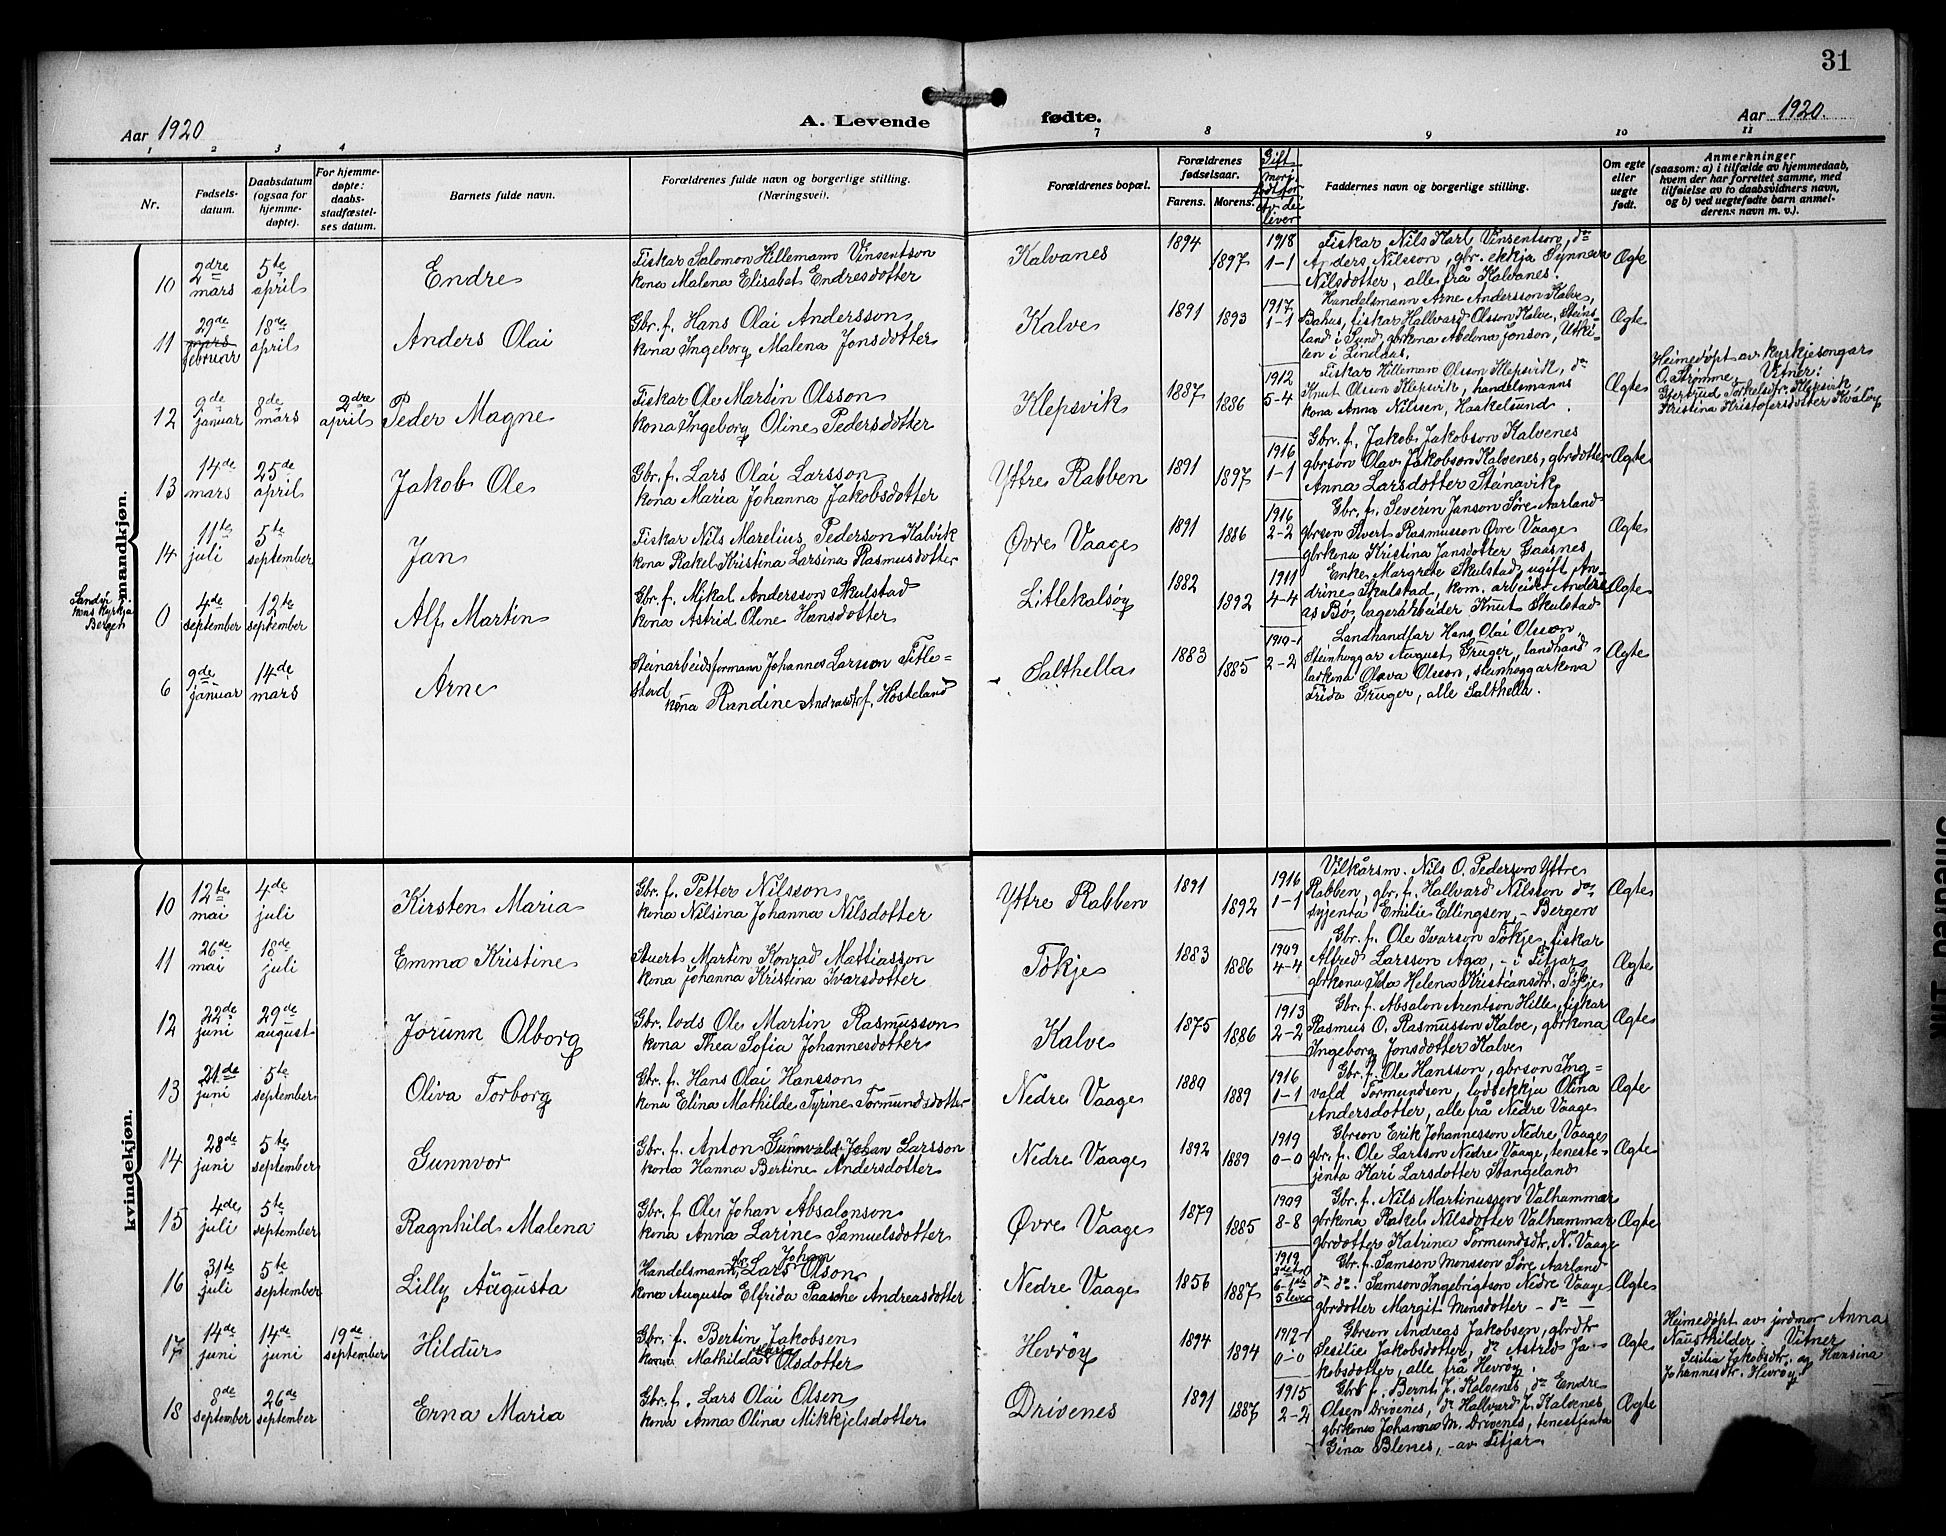 31
Aar 1920
A. Levende fødte.
Aar 1920.
1 2 3 4 7 8 9 10 11
Nr.
Fødsels-
datum.
Daabsdatum
(ogsaa for
hjemme-
døpte).
For hjemme-
døpte:
daabs-
stadfæstel-
ses datum.
Barnets fulde navn.
Forældrenes fulde navn og borgerlige stilling.
(Næringsvei).
Forældrenes bopæl.
Forældrenes
fødselsaar.
Farens. Morens.
Gift
Faddernes navn og borgerlige stilling.
Om egte
eller
uegte
født.
Anmerkninger
(saasom: a) i tilfælde av hjemmedaab,
hvem der har forrettet samme, med
tilføielse av to daabsvidners navn,
og b) ved uegtefødte barn anmel-
derens navn m. v.).
mandkjøn.
10
2dre
mars
5te
april
Endre
Fiskar Salomon Hillemann Vinsentson
kona Malena Elisabet Endresdotter
Kalvanes
1894
1897
1918
1-1
Fiskar Nils Karl Vinsentson, do
Anders Nilsson, gbr. ekkja Synneve
Nilsdotter, alle frå Kalvanes.
Ægte
11
29de
mars
februar
18de
april
Anders Olai
Gbr. f. Hans Olai Andersson
kona Ingeborg Malena Jonsdotter
Kalve
1891
1893
1917
1-1
Handelsmann Arne Andersson Kalve,
Bakus, fiskar Hallvard Olsson Kalve, Steins-
land i Sund, gbrkona Abelona Jonson, Utki-
len i Lindaas.
Ægte
12
9de
januar
8de
mars
2dre
april
Peder Magne
Fiskar Ole Martin Olsson
kona Ingeborg Oline Pedersdotter
Klepsvik
1887
1886
1912
5-4
Fiskar Hilleman Olsson Klepsvik, do
Knut Olsson Klepsvik, handelsmanns
kona Anna Nilssen, Haakelsund.
Ægte
Heimedøpt av kyrkjesongar
O. Strømme. Vitner:
Gjertrud Torkelsdtr. Klepsvik
Kristina Kristofersdotter Kvaløy
13
14de
mars
25de
april
Jakob Ole
Gbr. f. Lars Olai Larsson
kona Maria Johanna Jakobsdotter
Yttre Rabben
1891
1897
1916
1-1
Gbr. f. Jakob Jakobson Kalvenes
gbrson Olav Jakobson Kalvenes, gbrdotter
Anna Larsdotter Steinavik
Ægte
14
11te
juli
5te
september
Jan
Fiskar Nils Marelius Pederson Kalvik
kona Rakel Kristina Larsina Rasmusdotter
Øvre Vaage
1891
1886
1916
2-2
Gbr. f. Severin Janson Søre Aarland
gbrson Sivert Rasmusson Øvre Vaage
gbrkona Kristina Jansdotter Gaasnes
Ægte
kons kyrkja
Bergen
0
4de
september
12te
september
Alf Martin
Gbr. f. Mikal Andersson Skulstad
kona Astrid Oline Hansdotter
Litlekalsøy
1882
1892
1911
4-4
Enke Margrete Skulstad, ugift An-
drine Skulstad, kom. arbeider Andre-
as Bø, lagerarbeider Knut Skulstad
Ægte
6
9de
januar
14de
mars
Arne
Steinarbeidsformann Johannes Larsson Title-
stad
kona Randine Andrasdtr f. Hosteland
Salthella
1883
1885
1910-1
2-2
Landhandlar Hans Olai Olsson,
Steinhoggar August Gruger, landhand-
larkona Olava Olsson, steinhoggarkona
Frida Gruger, alle Salthella.
Ægte
kvindekjøn.
10
12te
mai
4de
juli
Kirsten Maria
Gbr. f. Petter Nilsson
kona Nilsina Johanna Nilsdotter
Yttre Rabben
1891
1892
1916
1-1
Vilkårsm. Nils O. Pederson Yttre
Rabben, gbr. f. Hallvard Nilsson do,
syjenta Emilie Ellingsen, - Bergen
Ægte
11
26de
mai
18de
juli
Emma Kristine
Stuert Martin Konrad Mattiasson
kona Johanna Kristina Ivarsdotter
Tøkje
1883
1886
1909
4-4
Gbr. f. Ole Ivarson Tøkje, fiskar
Alfred Larsson Aga, - i Fitjar,
gbrkona Ida Helena Kristiansdtr. Tøkje
Ægte
12
22de
juni
29de
august
Jorunn Olborg
Gbr. lods Ole Martin Rasmusson
kona Thea Sofia Johannesdotter
Kalve
1875
1886
1913
2-2
Gbr. f. Absalon Arentson Hille, fiskar
Rasmus O. Rasmusson Kalve, gbrkona
Ingeborg Jonsdotter Kalve
Ægte
13
21de
juni
5te
september
Oliva Torborg
Gbr. f. Hans Olai Hansson
kona Elina Mathilde Tyrine Tormundsdotter
Nedre Vaage
1889
1889
1916
1-1
Gbr. f. Ole Hansson, gbrson Ing-
vald Tormundsen, lodsekkja Olina
Andersdotter, alle frå Nedre Vaage
Ægte
14
28de
juni
5te
september
Gunnvor
Gbr. f. Anton Gunnvald Johan Larsson
kona Hanna Bertine Andersdotter
Nedre Vaage
1892
1889
1919
0-0
Gbrson Erik Johannesson Nedre Vaage
gbr. f. Ole Larsson Nedre Vaage, teneste-
jenta Kari Larsdotter Stangeland
Ægte
15
4de
juli
5te
september
Ragnhild Malena
Gbr. f. Ole Johan Absalonson
kona Anna Larine Samuelsdotter
Øvre Vaage
1879
1885
1909
8-8
Gbr. f. Nils Martinussen Valhammar
gbrkona Rakel Nilsdotter Valhammar
gbrdotter Katrina Tormundsdtr. N. Vaage
Ægte
16
31te
juli
5te
september
Lilly Augusta
Handelsmann, gbr. Lars Johan Olson
kona Augusta Elfrida Paasche Andreasdotter
Nedre Vaage
1856
1887
1912
6-1ste
5 lever
Gbr. f. Samson Monsson Søre Aarland
do do. Samson Ingebrigtson Nedre Vaage
gbrdotter Margit Monsdotter - do -
Ægte
17
14de
juni
14de
juni
19de
september
Hildur
Gbr. f. Bertin Jakobsen
kona Mathilda Maria Olsdotter
Hevrøy
1894
1894
1919-1
0-0
Gbrson Andreas Jakobsen, gbrdtr
Sesilie Jakobsdotter, do Astrid Ja-
kobsdotter, alle frå Hevrøy.
Ægte
Heimedøpt av jordmor Anna
Nausthilder. Vitner
Sesilia Jakobsdtr. og Hansina
Johannesdtr. Hevrøy
18
8de
september
26de
september
Erna Maria
Gbr. f. Lars Olai Olsen
kona Anna Olina Mikkjelsdotter
Drivenes
1891
1887
1915
2-2
Gbr. f. Bernt J. Kalvenes, do Endre
Olsen Drivenes, do Hallvard J. Kalvenes,
gbrkona Johanna M. Drivenes, tenestjenta
Gina Blenes, - av Fitjar.
Ægte